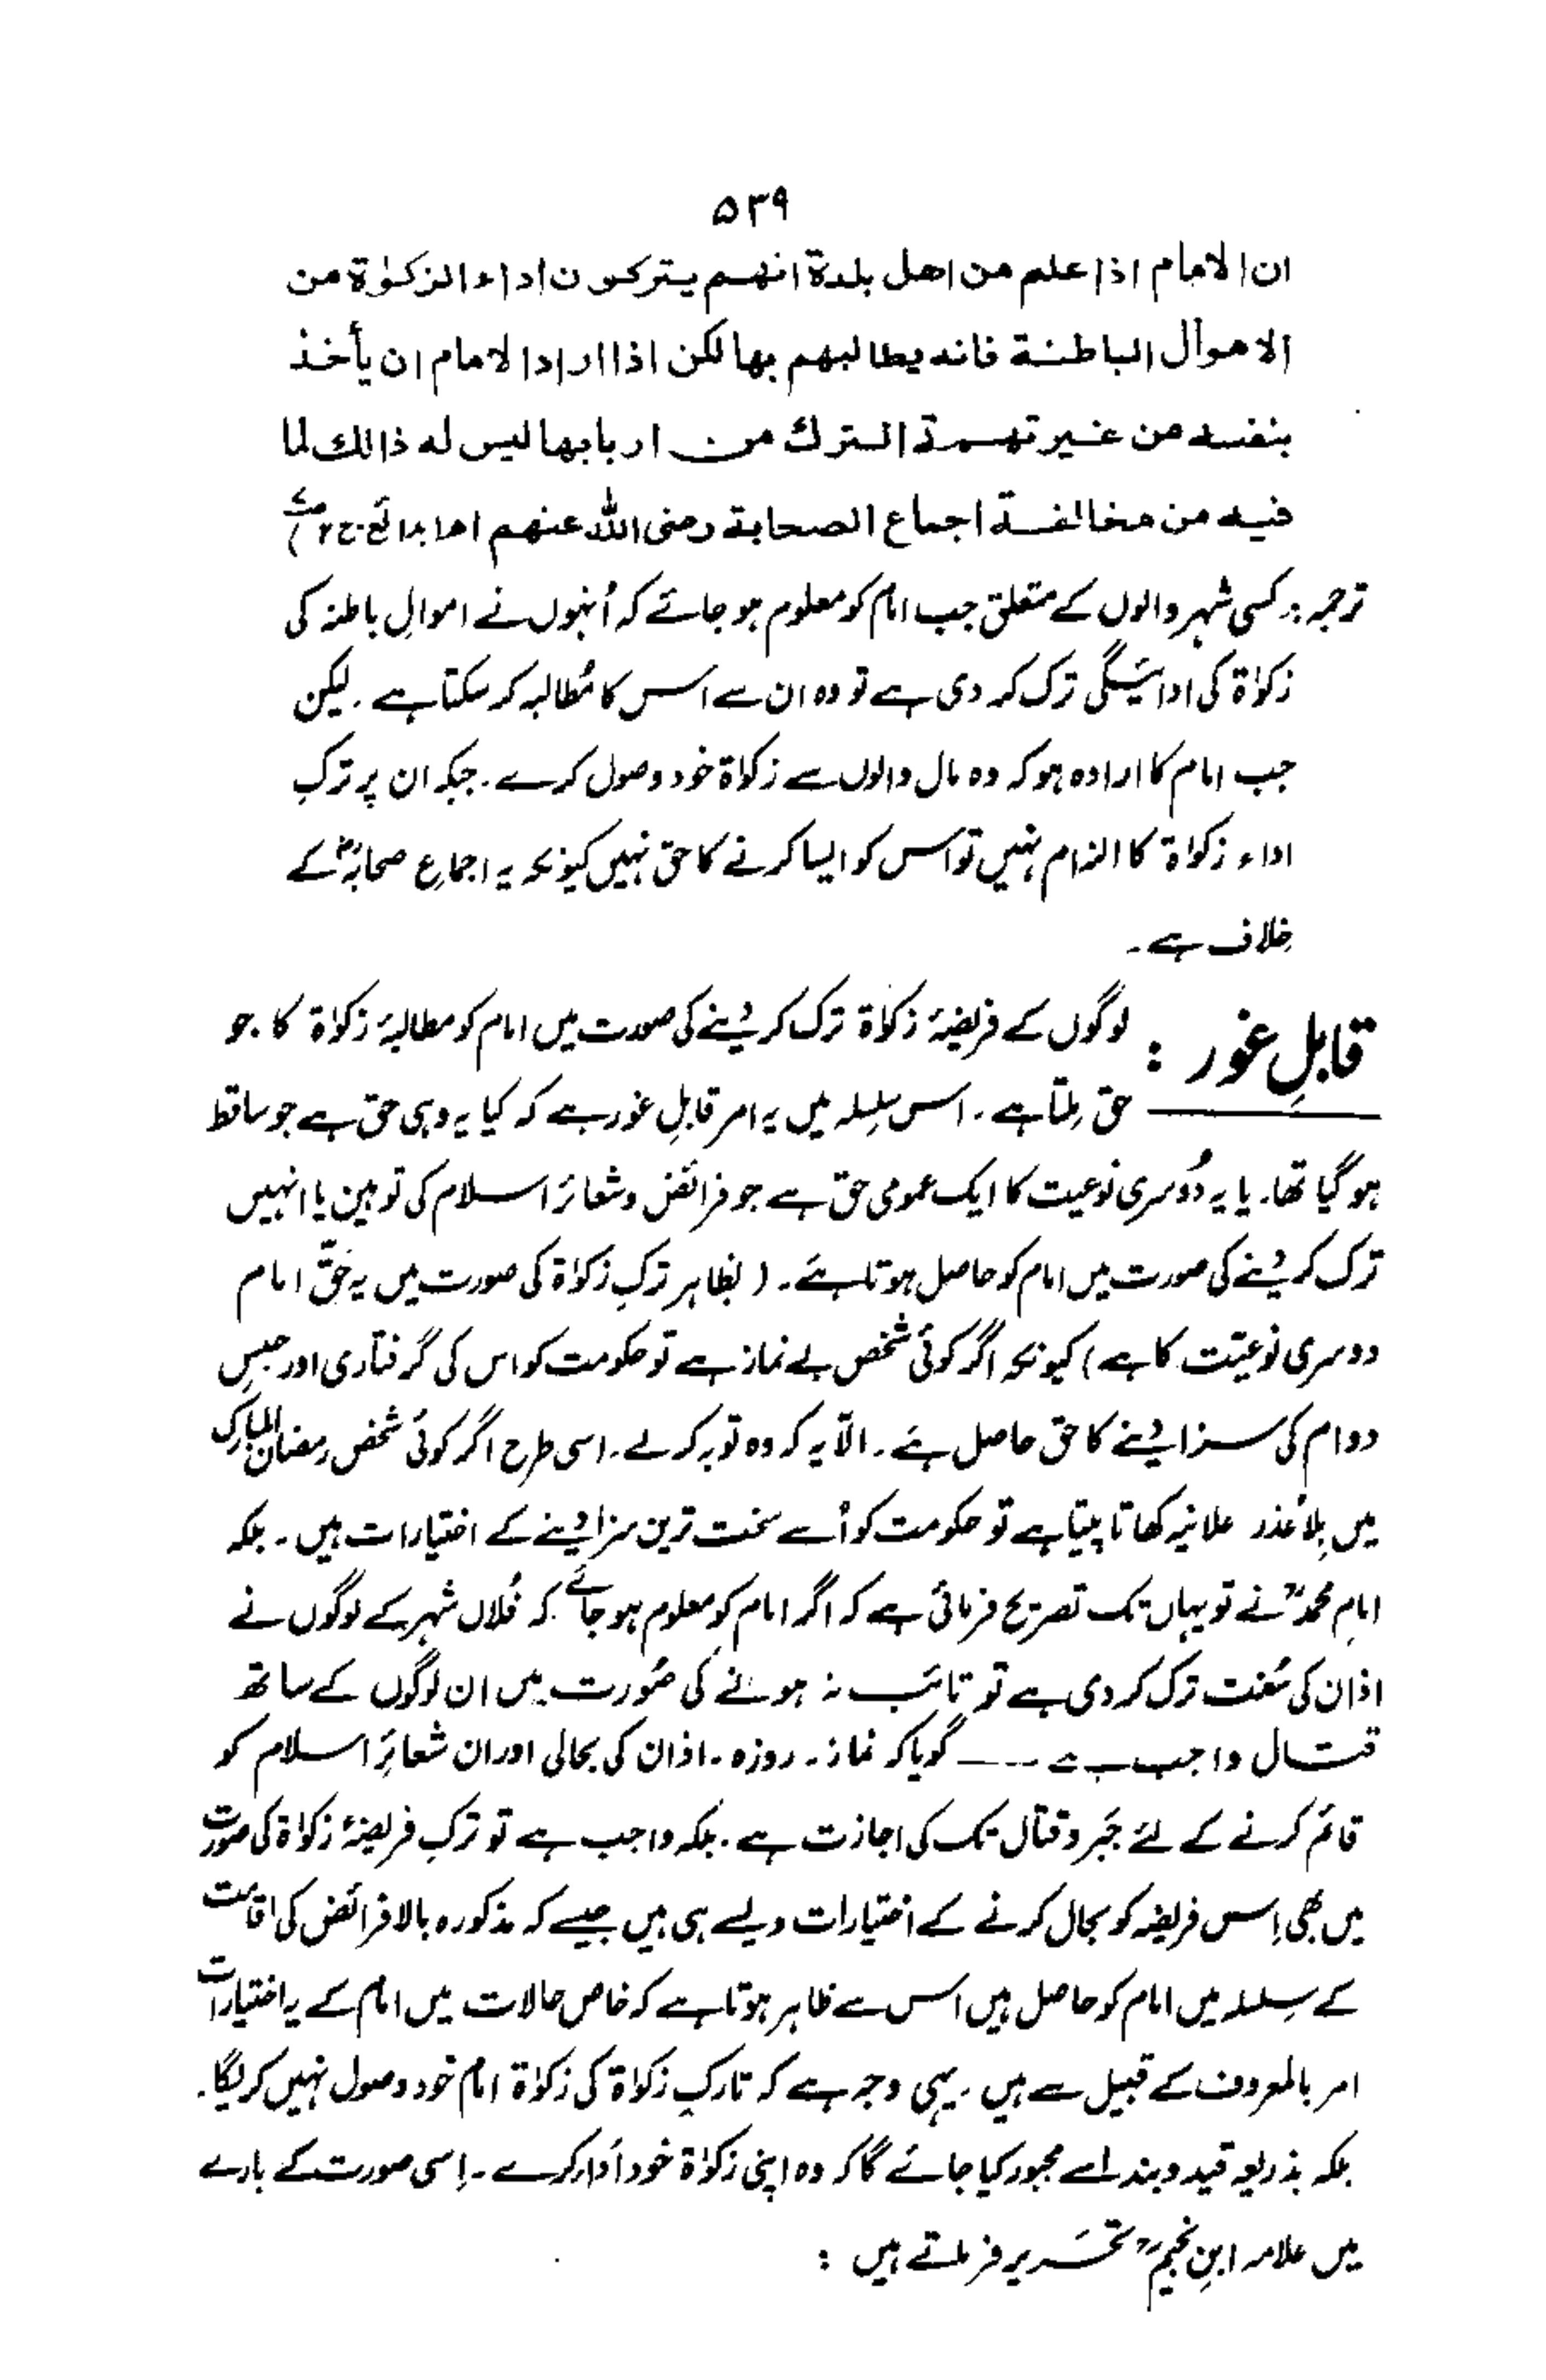 ۵۳۹
ان الامام اذا علم من اهل بلدة انهم يتركون اداء الزكوٰة من
الاموال الباطنة فانه يطالبهم بها لكن اذا اراد الامام ان يأخذ
بنفسه من غير تهمة الترك من اربابها ليس له ذالك لما
فيه من مخالفة اجماع الصحابة رضى الله عنهم اھ (بدائع ج ۲ ص
ترجمہ :۔ کسی شہر والوں کے متعلق جب امام کو معلوم ہو جائے کہ اُنہوں نے اموالِ باطنہ کی
زکوٰۃ کی ادائیگی ترک کر دی ہے تو وہ ان سے اس کا مُطالبہ کر سکتا ہے ۔ لیکن
جب امام کا ارادہ ہو کہ وہ مال والوں سے زکوٰۃ خود وصول کرے ۔ جبکہ ان پر ترکِ
اداء زکوٰۃ کا الزام نہیں تو اس کو ایسا کرنے کا حق نہیں کیونکہ یہ اجماعِ صحابہؓ کے
خلاف ہے ۔
قابلِ غور : لوگوں کے فریضۂ زکوٰۃ ترک کر دینے کی صورت میں امام کو مطالبۂ زکوٰۃ کا جو
حق مِلتا ہے ۔ اس سِلسلہ میں یہ امر قابلِ غور ہے کہ کیا یہ وہی حق ہے جو ساقط
ہو گیا تھا ۔ یا یہ دُوسری نوعیت کا ایک عمومی حق ہے جو فرائض و شعائر اسلام کی توہین یا انہیں
ترک کر دینے کی صورت میں امام کو حاصل ہوتا ہے ۔ ( بظاہر ترکِ زکوٰۃ کی صورت میں یہ حقِّ امام
دوسری نوعیّت کا ہے ) کیونکہ اگر کوئی شخص بے نماز ہے تو حکومت کو اس کی گرفتاری اور حبسِ
دوام کی سزا دینے کا حق حاصل ہے ۔ الاّ یہ کہ وہ توبہ کر لے ۔ اسی طرح اگر کوئی شخص رمضان المبارک
میں بِلا عُذر علانیہ کھاتا پیتا ہے تو حکومت کو اُسے سخت ترین سزا دینے کے اختیارات ہیں ۔ بلکہ
امام محمدؒ نے تو یہاں تک تصریح فرمائی ہے کہ اگر امام کو معلوم ہو جائے کہ فُلاں شہر کے لوگوں نے
اذان کی سُنت ترک کر دی ہے تو تائب نہ ہونے کی صُورت میں ان لوگوں کے ساتھ
قتال واجب ہے ۔۔۔ گویا کہ نماز ۔ روزہ ۔ اذان کی بحالی اور ان شعائرِ اسلام کو
قائم کرنے کے لئے جَبر و قتال تک کی اجازت ہے ۔ بلکہ واجب ہے تو ترکِ فریضۂ زکوٰۃ کی صورت
میں بھی اِس فریضہ کو بحال کرنے کے اختیارات ویسے ہی ہیں جیسے کہ مذکورہ بالا فرائض کی اقامت
کے سِلسلہ میں امام کو حاصل ہیں اس سے ظاہر ہوتا ہے کہ خاص حالات میں امام کے یہ اختیارات
امر بالمعروف کے قبیل سے ہیں ۔ یہی وجہ ہے کہ تارکِ زکوٰۃ کی زکوٰۃ امام خود وصول نہیں کریگا ۔
بلکہ بذریعہ قید و بند اسے مجبور کیا جائے گا کہ وہ اپنی زکوٰۃ خود اَدا کرے ۔ اِسی صورت کے بارے
میں علامہ ابنِ نجیمؒ تحَریر فرماتے ہیں :